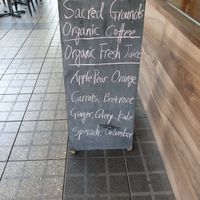 Sacred Grounds
Organic Coffee
Organic Fresh Juice
Apple Pear Orange
Carrots, Beetroot
Ginger Celery Kale
Spinach Cucumber